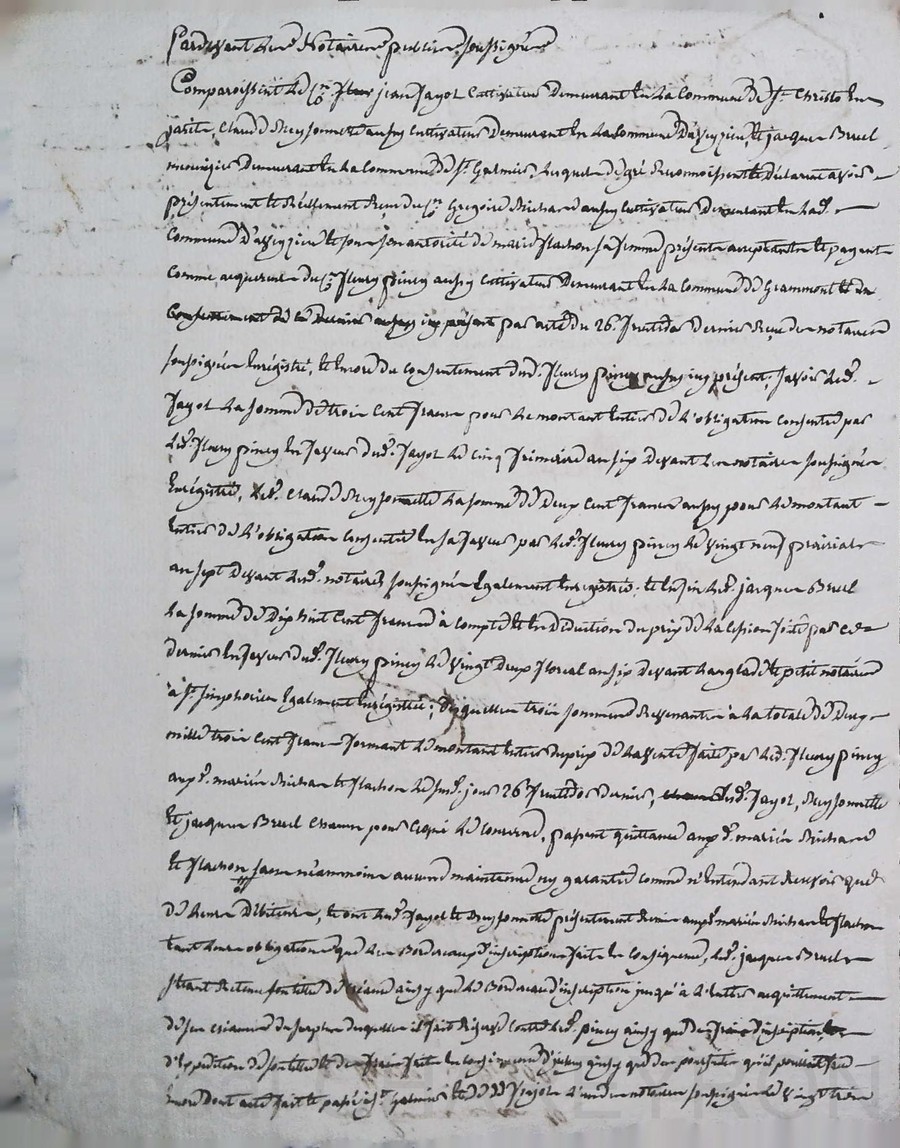 Pardevant les Notaires publics soussignés
Comparoissent le Cen Jean Jayol cultivateur demeurant en la commune de St. Christo en
jarest, Claude Reyssonnette aussy cultivateur demeurant en la commune d'aveyzieu, et jacques Breul
menuizier demeurant en la commune de St. Galmier, lesquels de gré reconnoissent et déclarent avoir
présentement et réellement reçu du Cen Gregoire Richard aussy cultivateur demeurant en lad.
commune d'aveyzieu et sous son autorité de marie flachon sa femme présents acceptants et payants
comme acquereurs du Cen fleury piney aussy cultivateur demeurant en la commune de Grammont et du
consentement de ce dernier aussy icy présent par acte du 26 fructidor dernier reçu des notaires
soussignés enregistré, et encore du consentement dud. fleury piney aussy icy présent; savoir led.
Jayol la somme de trois cent francs pour le montant entier de l'obligation consentie par
led. fleury piney en faveur dud. Jayol le cinq frimaire an six devant les notaires soussignés
enregistré, led. Claude Reyssonnette la somme de deux cent francs aussy pour le montant
entier de l'obligation consentie en sa faveur par led. fleury piney le vingt neuf prairial
an sept devant lesd. notaires soussignés également enregistrée; et enfin led. jacques Breul
la somme de dix huit cent francs à compte et en déduction du prix de la cession faite par ce
dernier en faveur dud. fleury piney le vingt deux floreal an six devant et petit notaires
à St. simphorien également enregistrée; desquelles trois sommes revenantes à la totale de deux
mille trois cent francs formant le montant entier du prix de la vente faite par led. fleury piney
aux d. mariés Richard et flachon led. jour 26 fructidor dernier, lesd. Jayol, Reyssonnette
et jacques Breul chacun pour ce qui le concerne, passent quittance aux d. mariés Richard
et flachon sans néanmoins aucune maintenue ny garantie comme n'entendant recevoir que
de leurs débiteurs, et ont lesd. Jayol et Reyssonnette présentement remis aux d. mariés Richard et flachon
tant leurs obligations que les Bordereaux d'inscription faits en conséquence, led. jacques Breul
étant retenu son titre de créance ainsy que le Bordereau d'inscription jusqu'à l'entier acquittement
de ses créances du surplus desquelles il fait réserve contre led. piney ainsy que des frais d'inscription
d'expédition de son titre et des frais faits en conséquence ainsy que des poursuites qu'il pourroit faire
encore dont acte fait et passé à St. galmier et l'un des notaires soussignés le vingt trois